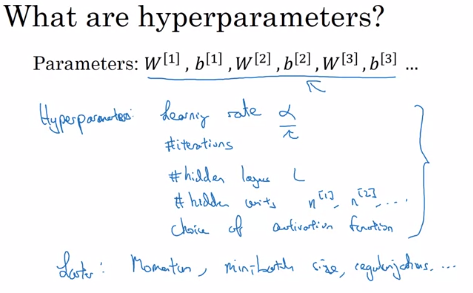 What are hyperparameters?
Parameters: W^[1], b^[1], W^[2], b^[2], W^[3], b^[3] ...
Hyperparameters: Learning rate α
#iterations
#hidden layers L
#hidden units n^[1], n^[2], ...
choice of activation function
Later: Momentum, mini-batch size, regularizations, ...